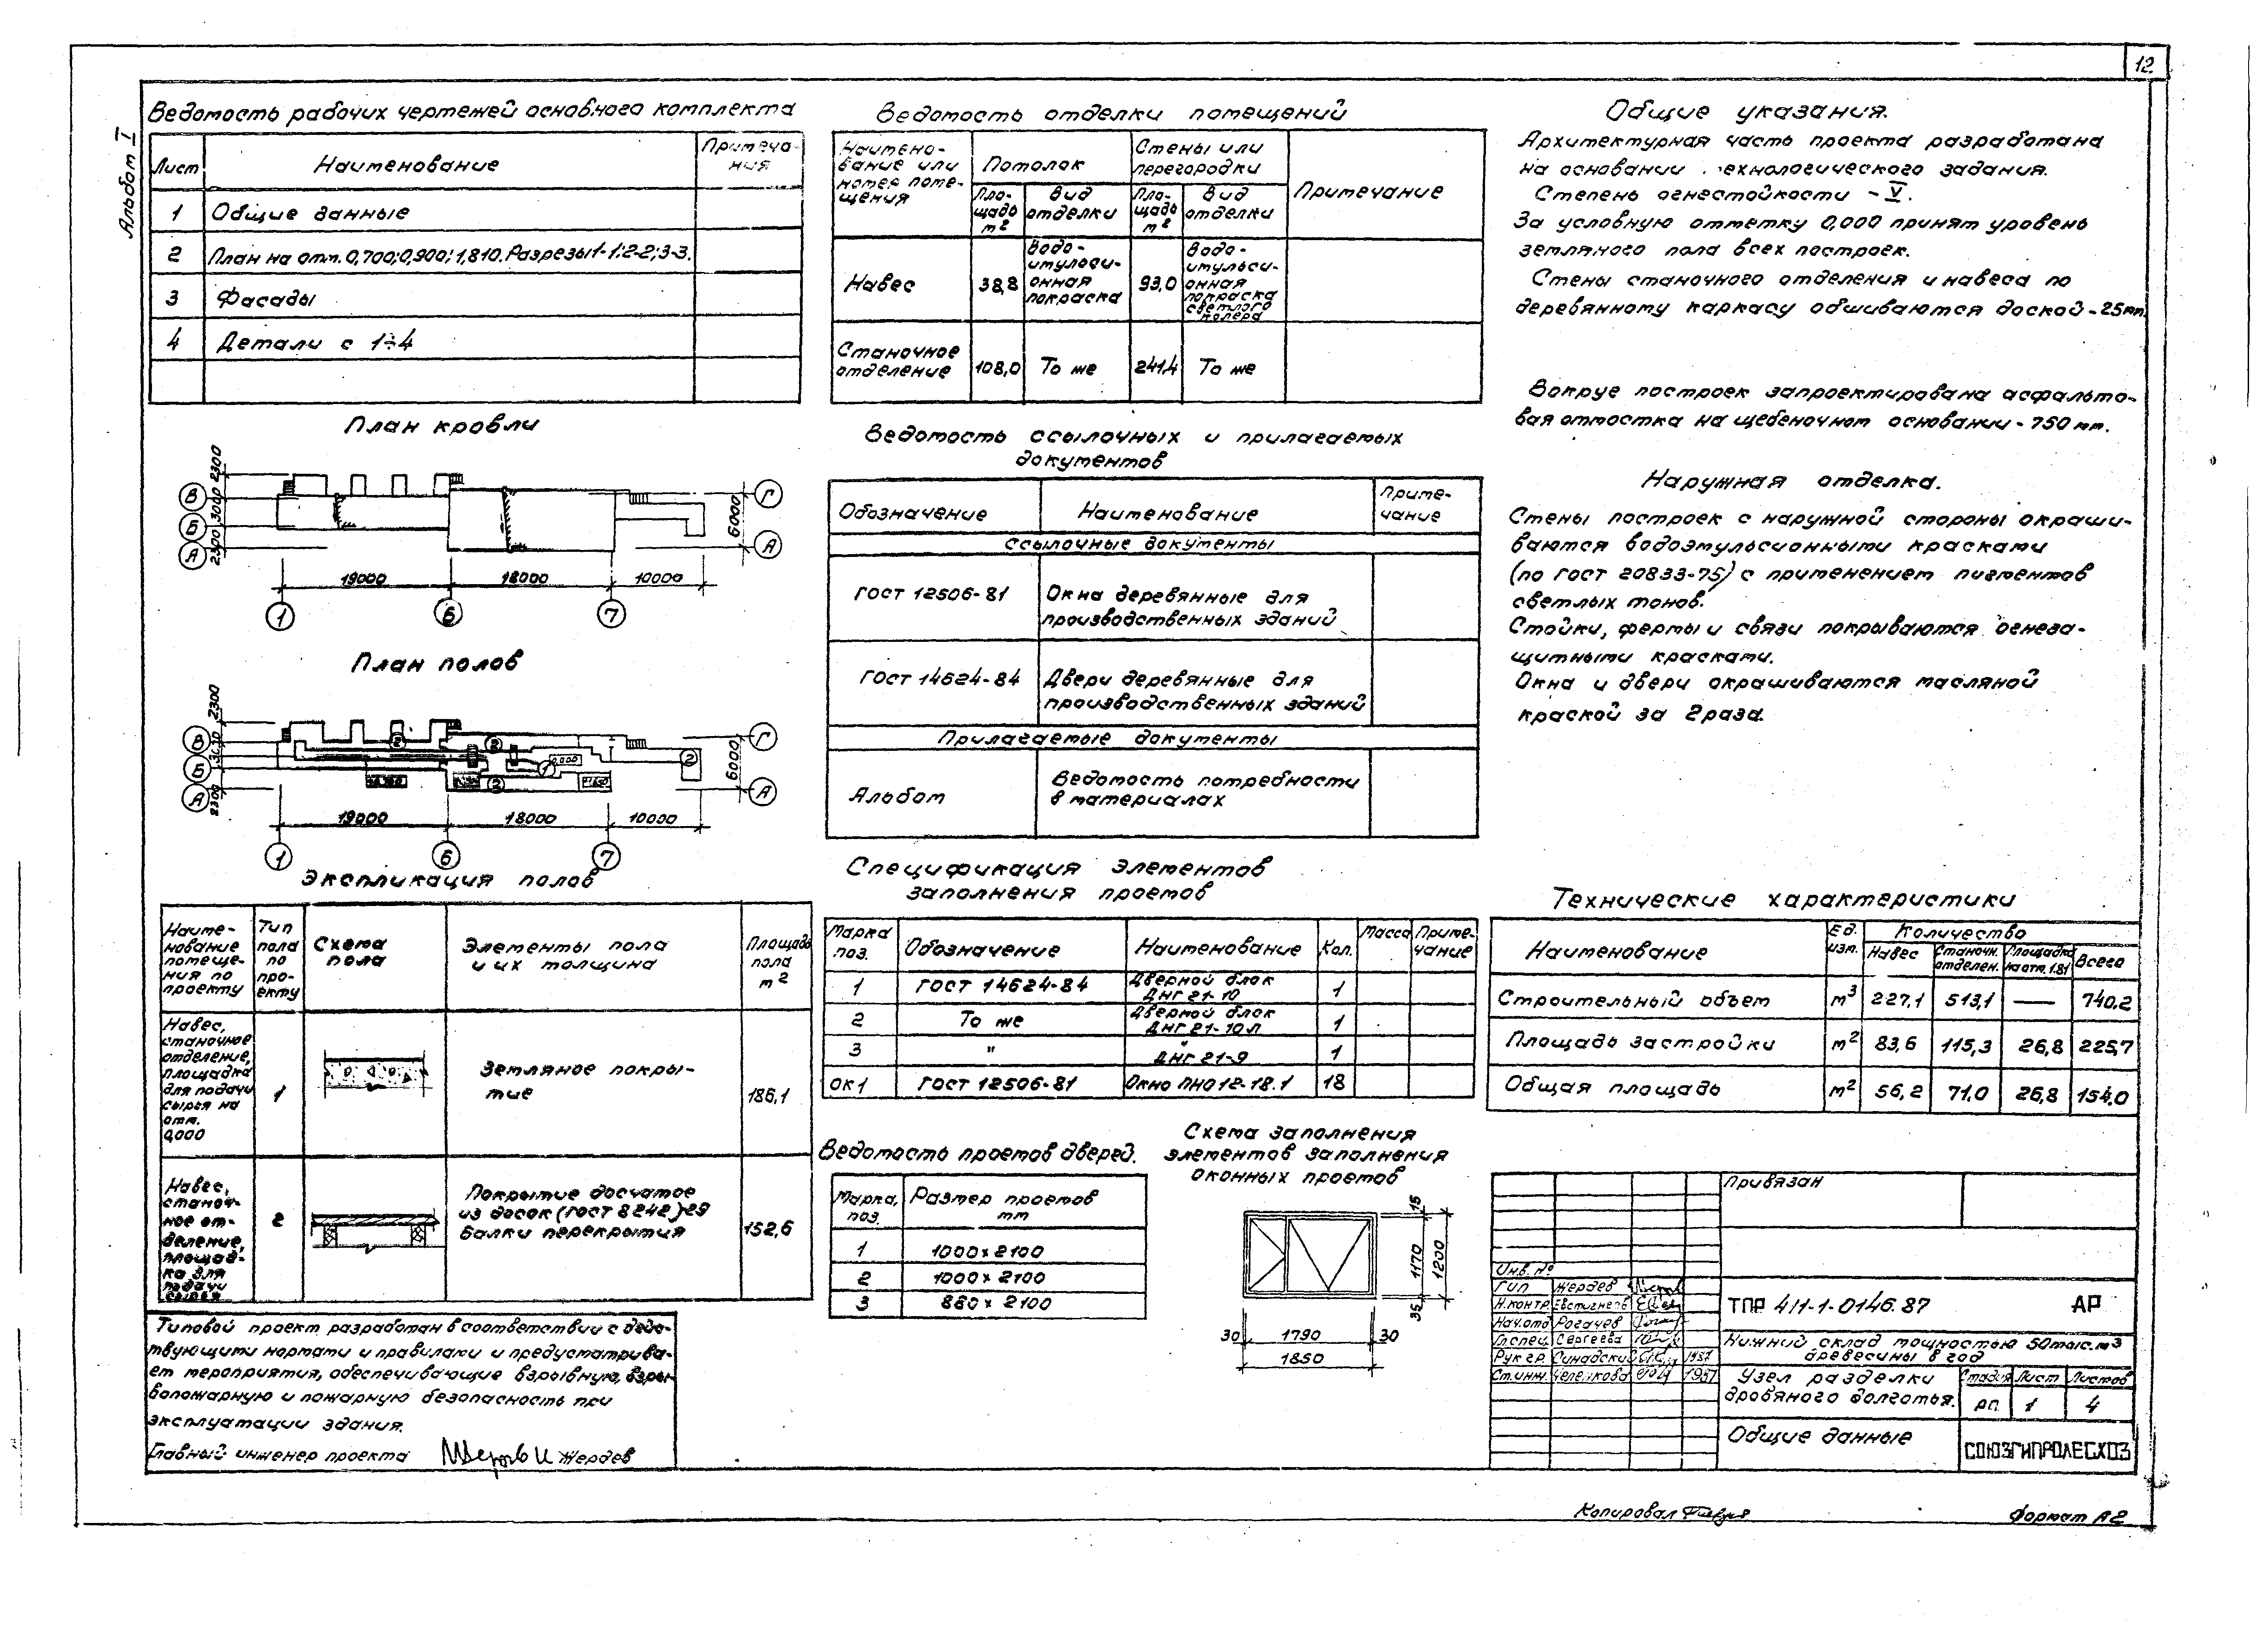 12
Альбом I
Ведомость рабочих чертежей основного комплекта
Лист Наименование Примеча-
ния
1 Общие данные
2 План на отм. 0,700; 0,900; 1,810. Разрезы 1-1; 2-2; 3-3.
3 Фасады
4 Детали с 1÷4
План кровли
В Б А
2300 3000 2300
Г А
6000
19000 18000 10000
1 6 7
План полов
В Б А
2300 2300
Г А
6000
2 2 2 2 1
0,000
19000 18000 10000
1 6 7
Экспликация полов
Наиме-
нование
помеще-
ния по
проекту
Тип
пола
по
про-
екту
Схема
пола
Элементы пола
и их толщина
Площадь
пола
м2
Навес,
станочное
отделение,
площадка
для подачи
сырья на
отм.
0,000
1
Земляное покры-
тие
186,1
Навес,
станоч-
ное от-
деление,
площад-
ка для
подачи
сырья
2
Покрытие досчатое
из досок (ГОСТ 8242) 29
Балки перекрытия
152,6
Типовой проект разработан в соответствии с дейс-
твующими нормами и правилами и предусматрива-
ет мероприятия, обеспечивающие взрывную, взры-
вопожарную и пожарную безопасность при
эксплуатации здания.
Главный инженер проекта Жердев
Ведомость отделки помещений
Наимено-
вание или
номер поме-
щения
Потолок
Стены или
перегородки
Примечание
Пло-
щадь
м2
Вид
отделки
Пло-
щадь
м2
Вид
отделки
Навес 38,8
Водо-
эмульси-
онная
покраска
93,0
Водо-
эмульси-
онная
покраска
светлого
колера
Станочное
отделение
108,0 То же 241,4 То же
Ведомость ссылочных и прилагаемых
документов
Обозначение Наименование Приме-
чание
Ссылочные документы
ГОСТ 12506-81 Окна деревянные для
производственных зданий
ГОСТ 14624-84 Двери деревянные для
производственных зданий
Прилагаемые документы
Альбом Ведомость потребности
в материалах
Спецификация элементов
заполнения проемов
Марка
поз.
Обозначение Наименование Кол. Масса Приме-
чание
1 ГОСТ 14624-84 Дверной блок
ДНГ 21-10 1
2 То же Дверной блок
ДНГ 21-10Л 1
3 " "
ДНГ 21-9 1
ОК1 ГОСТ 12506-81 Окно ПНО 12-18.1 18
Ведомость проемов дверей.
Марка,
поз.
Размер проемов
мм
1 1000 x 2100
2 1000 x 2100
3 860 x 2100
Схема заполнения
элементов заполнения
оконных проемов
15
1170 1200
35
30 1790 30
1850
Общие указания.
Архитектурная часть проекта разработана
на основании технологического задания.
Степень огнестойкости - V.
За условную отметку 0,000 принят уровень
земляного пола всех построек.
Стены станочного отделения и навеса по
деревянному каркасу обшиваются доской - 25мм.
Вокруг построек запроектирована асфальто-
вая отмостка на щебеночном основании - 750 мм.
Наружная отделка.
Стены построек с наружной стороны окраши-
ваются водоэмульсионными красками
(по ГОСТ 20833-75) с применением пигментов
светлых тонов.
Стойки, фермы и связи покрываются огнеза-
щитными красками.
Окна и двери окрашиваются масляной
краской за 2 раза.
Технические характеристики
Наименование Ед.
изм.
Количество
Навес Станочн.
отделен.
Площадка
на отм. 1.81
Всего
Строительный объем м3 227,1 513,1 — 740,2
Площадь застройки м2 83,6 115,3 26,8 225,7
Общая площадь м2 56,2 71,0 26,8 154,0
Привязан
Инв. №
ГИП Жердев
Н.контр Евстигнеев
Нач.отд Рогачев
Гл.спец. Сергеева
Рук.гр. Синадский 1987
Ст.инж. Челенкова 1987
ТПР 411-1-0146.87 АР
Нижний склад мощностью 50тыс.м3
древесины в год
Узел разделки
дровяного долготья.
Стадия Лист Листов
РП. 1 4
Общие данные
СОЮЗГИПРОЛЕСХОЗ
Копировал
Формат А2